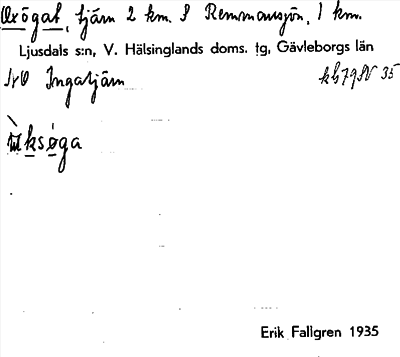 Oxögat, tjärn 2 km. S Remmarsjön, 1 km.
Ljusdals s:n, V. Hälsinglands doms. tg, Gävleborgs län
NO Ingatjärn kb 79 SV 35
ùksøga
Erik Fallgren 1935